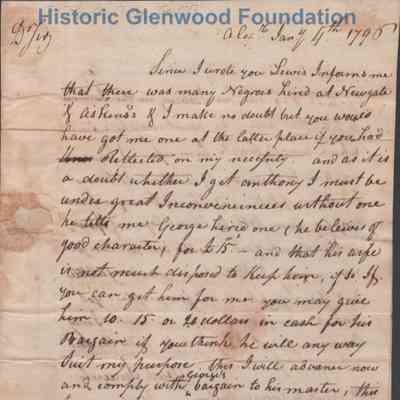 Historic Glenwood Foundation
Alexa Jany 4th 1796
Dr Sir
Since I wrote you Lewis Informs me
that there was many Negroes hired at Newgate
& Askens's & I make no doubt but you would
have got me one at the latter place if you had
Reflected on my necessity and as it is
a doubt whether I get Anthony I must be
under great Inconveniences without one
he tells me George hired one, he believes of
good character, for £15 - and that his wife
is not much disposed to keep him, if so If
you can get him for me you may give
him 10. 15 or 20 dollars in cash for his
Bargain if you think he will any way
Suit my purpose, this I will advance now
and comply with George's bargain to his master, this